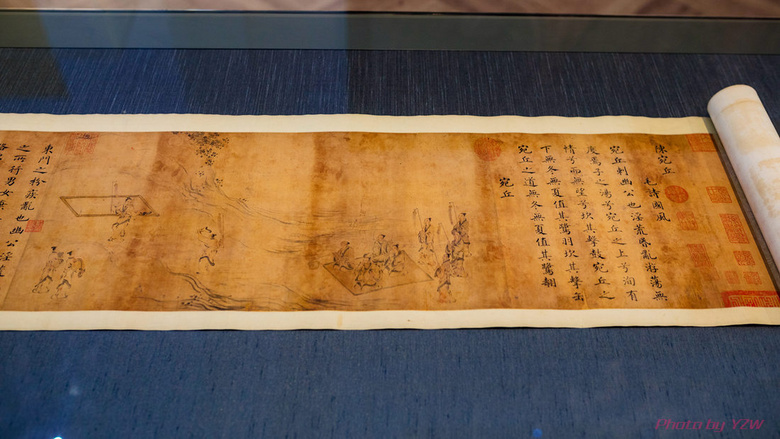 陳宛丘
毛詩國風
宛丘刺幽公也淫荒昬亂游蕩無
度焉子之湯兮宛丘之上兮洵有
情兮而無望兮坎其擊鼓宛丘之
下無冬無夏值其鷺羽坎其擊缶
宛丘之道無冬無夏值其鷺翿
宛丘
東門之枌疾亂也幽公淫荒
之所行男女棄
Photo by YZW